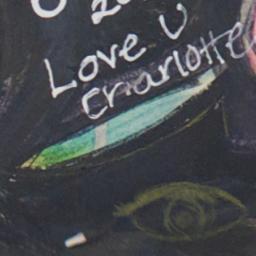 Love U
Charlotte